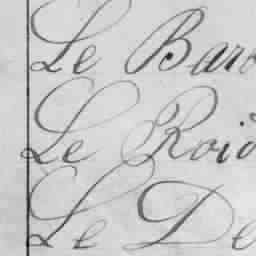 Le Baro
Le Roid
Le De